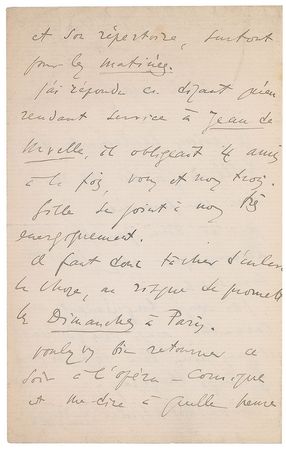 et son répertoire, surtout
pour les matinées.
j'ai répondu en disant qu'en
rendant service à Jean de
Nivelle, il obligeait 4 amis
à la fois, vous et nous trois.
Gille se joint à nous très
énergiquement.
Il faut donc tâcher d'enlever
la chose, au risque de promettre
les Dimanches à Paris.
voulez vs bien retourner ce
soir à l'opéra-comique
et me dire à quelle heure